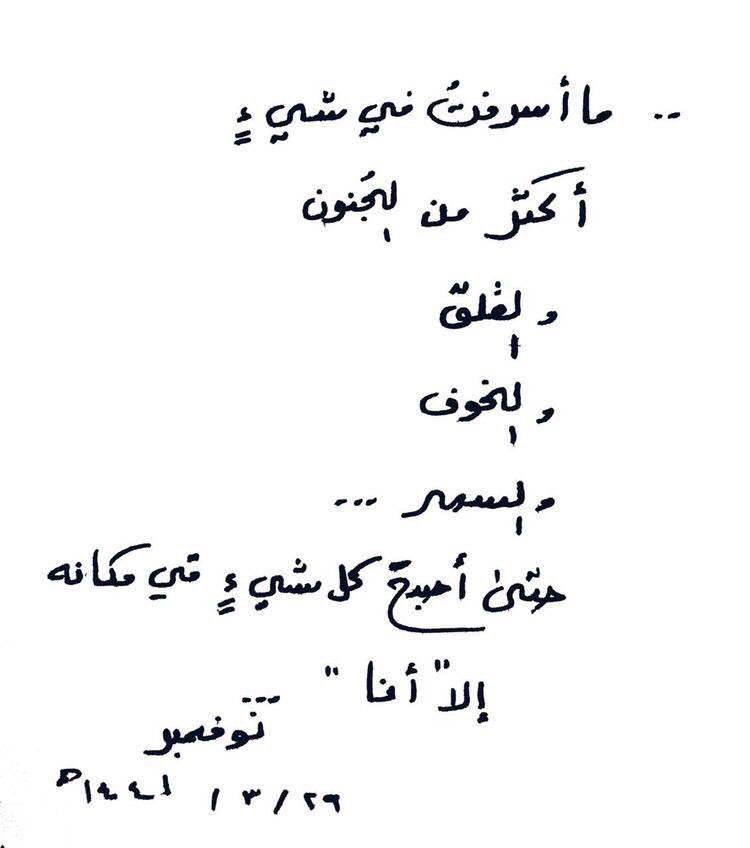 .. ما أسرفتُ في شيءٍ
أكثر من الجُنون
و القلق
و الخوف
و السهر ...
حتىٰ أصبح كل شيءٍ في مكانه
إلا " أنا " ...
نوفمبر
٢٩ / ٣ / ١٤٤١ه